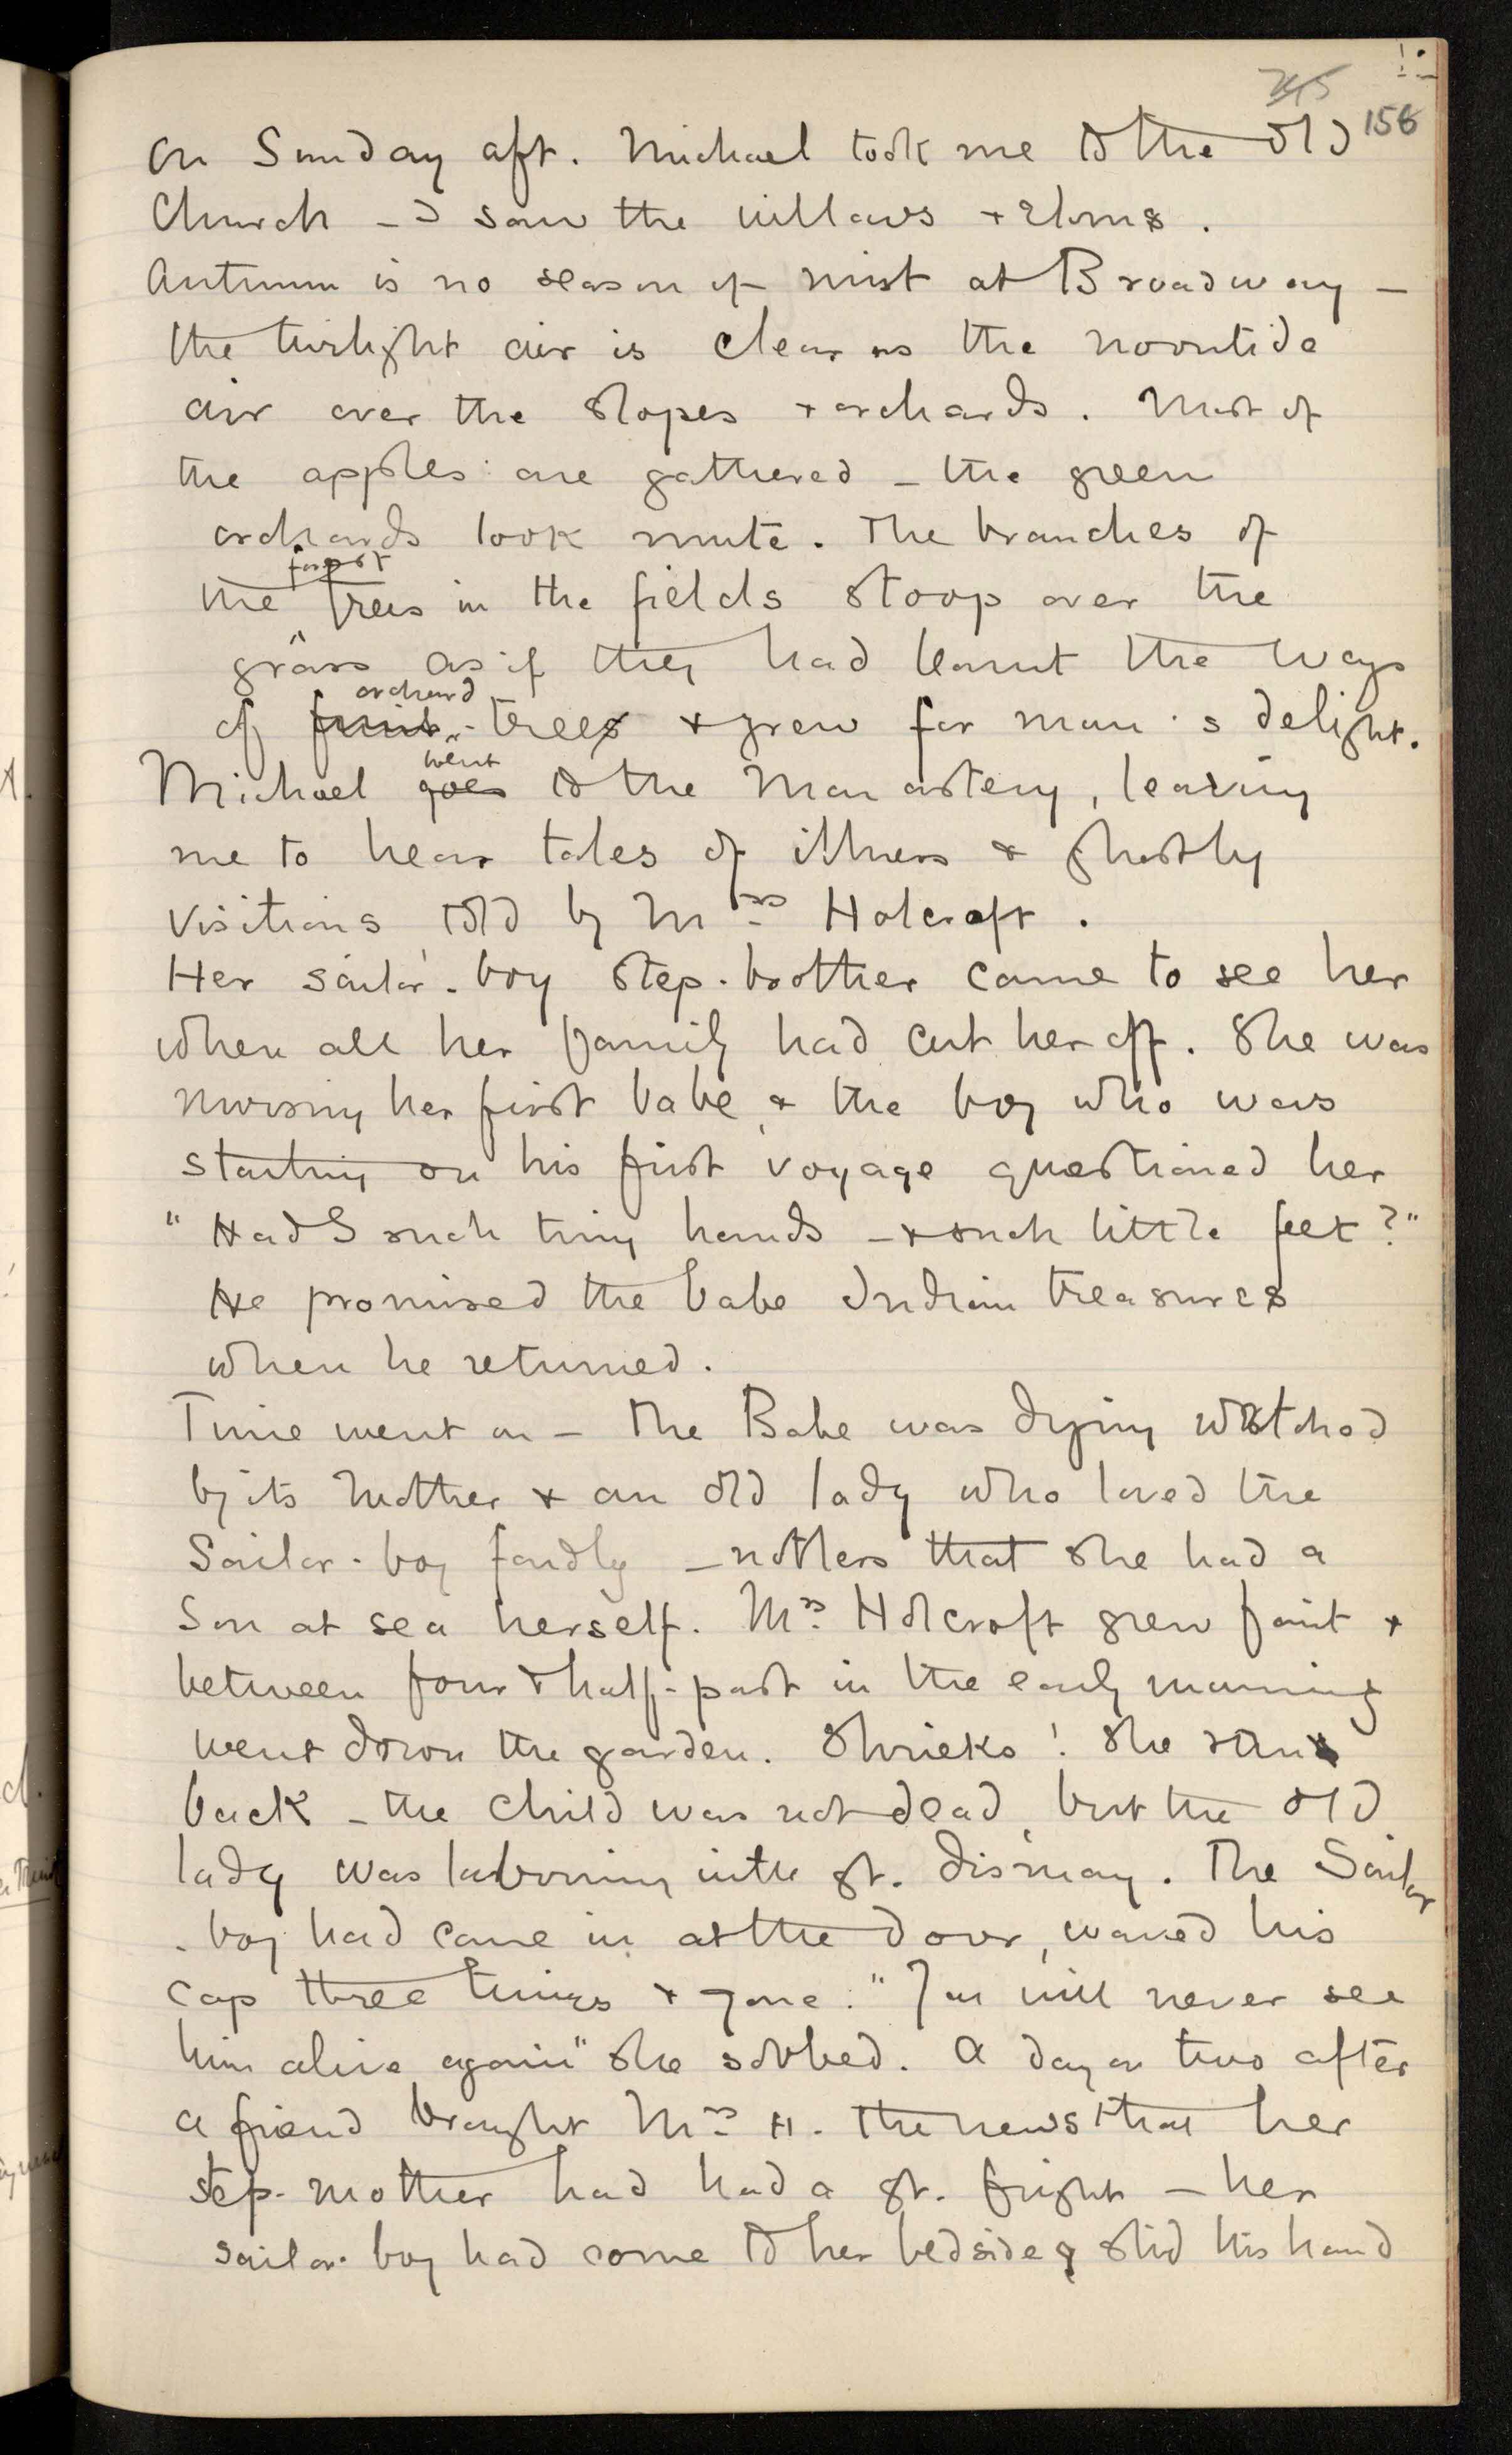 156
On Sunday aft. Michael took me to the old
Church – I saw the willows & elms.
Autumn is no season of mist at Broadway –
the twilight air is clear as the noontide
air over the slopes & orchards. Most of
the apples are gathered – the green
orchards look mute. The branches of
forest
the trees in the fields stoop over the
grass as if they had learnt the ways
orchard
of fruit-trees & grew for man's delight.
went
Michael goes to the Monastery, leaving
me to hear tales of illness & ghostly
visitions told by Mrs Holcroft.
Her sailor-boy step-brother came to see her
when all her family had cut her off. She was
nursing her first babe, & the boy who was
starting on his first voyage questioned her
"Had I such tiny hands – & such little feet?"
He promised the babe Indian treasures
when he returned.
Time went on – The Babe was dying watched
by its Mother & an old lady who loved the
Sailor-boy fondly – notless that she had a
Son at sea herself. Mrs Holcroft grew faint &
between four & half-past in the early morning
went down the garden. Shrieks! She ran
back – the child was not dead, but the old
lady was labouring with gt. dismay. The Sailor
-boy had come in at the door, waved his
cap three times & gone. "You will never see
him alive again" she sobbed. A day or two after
a friend brought Mrs H. the news that her
step-mother had had a gt. fright – her
sailor-boy had come to her bedside, slid his hand